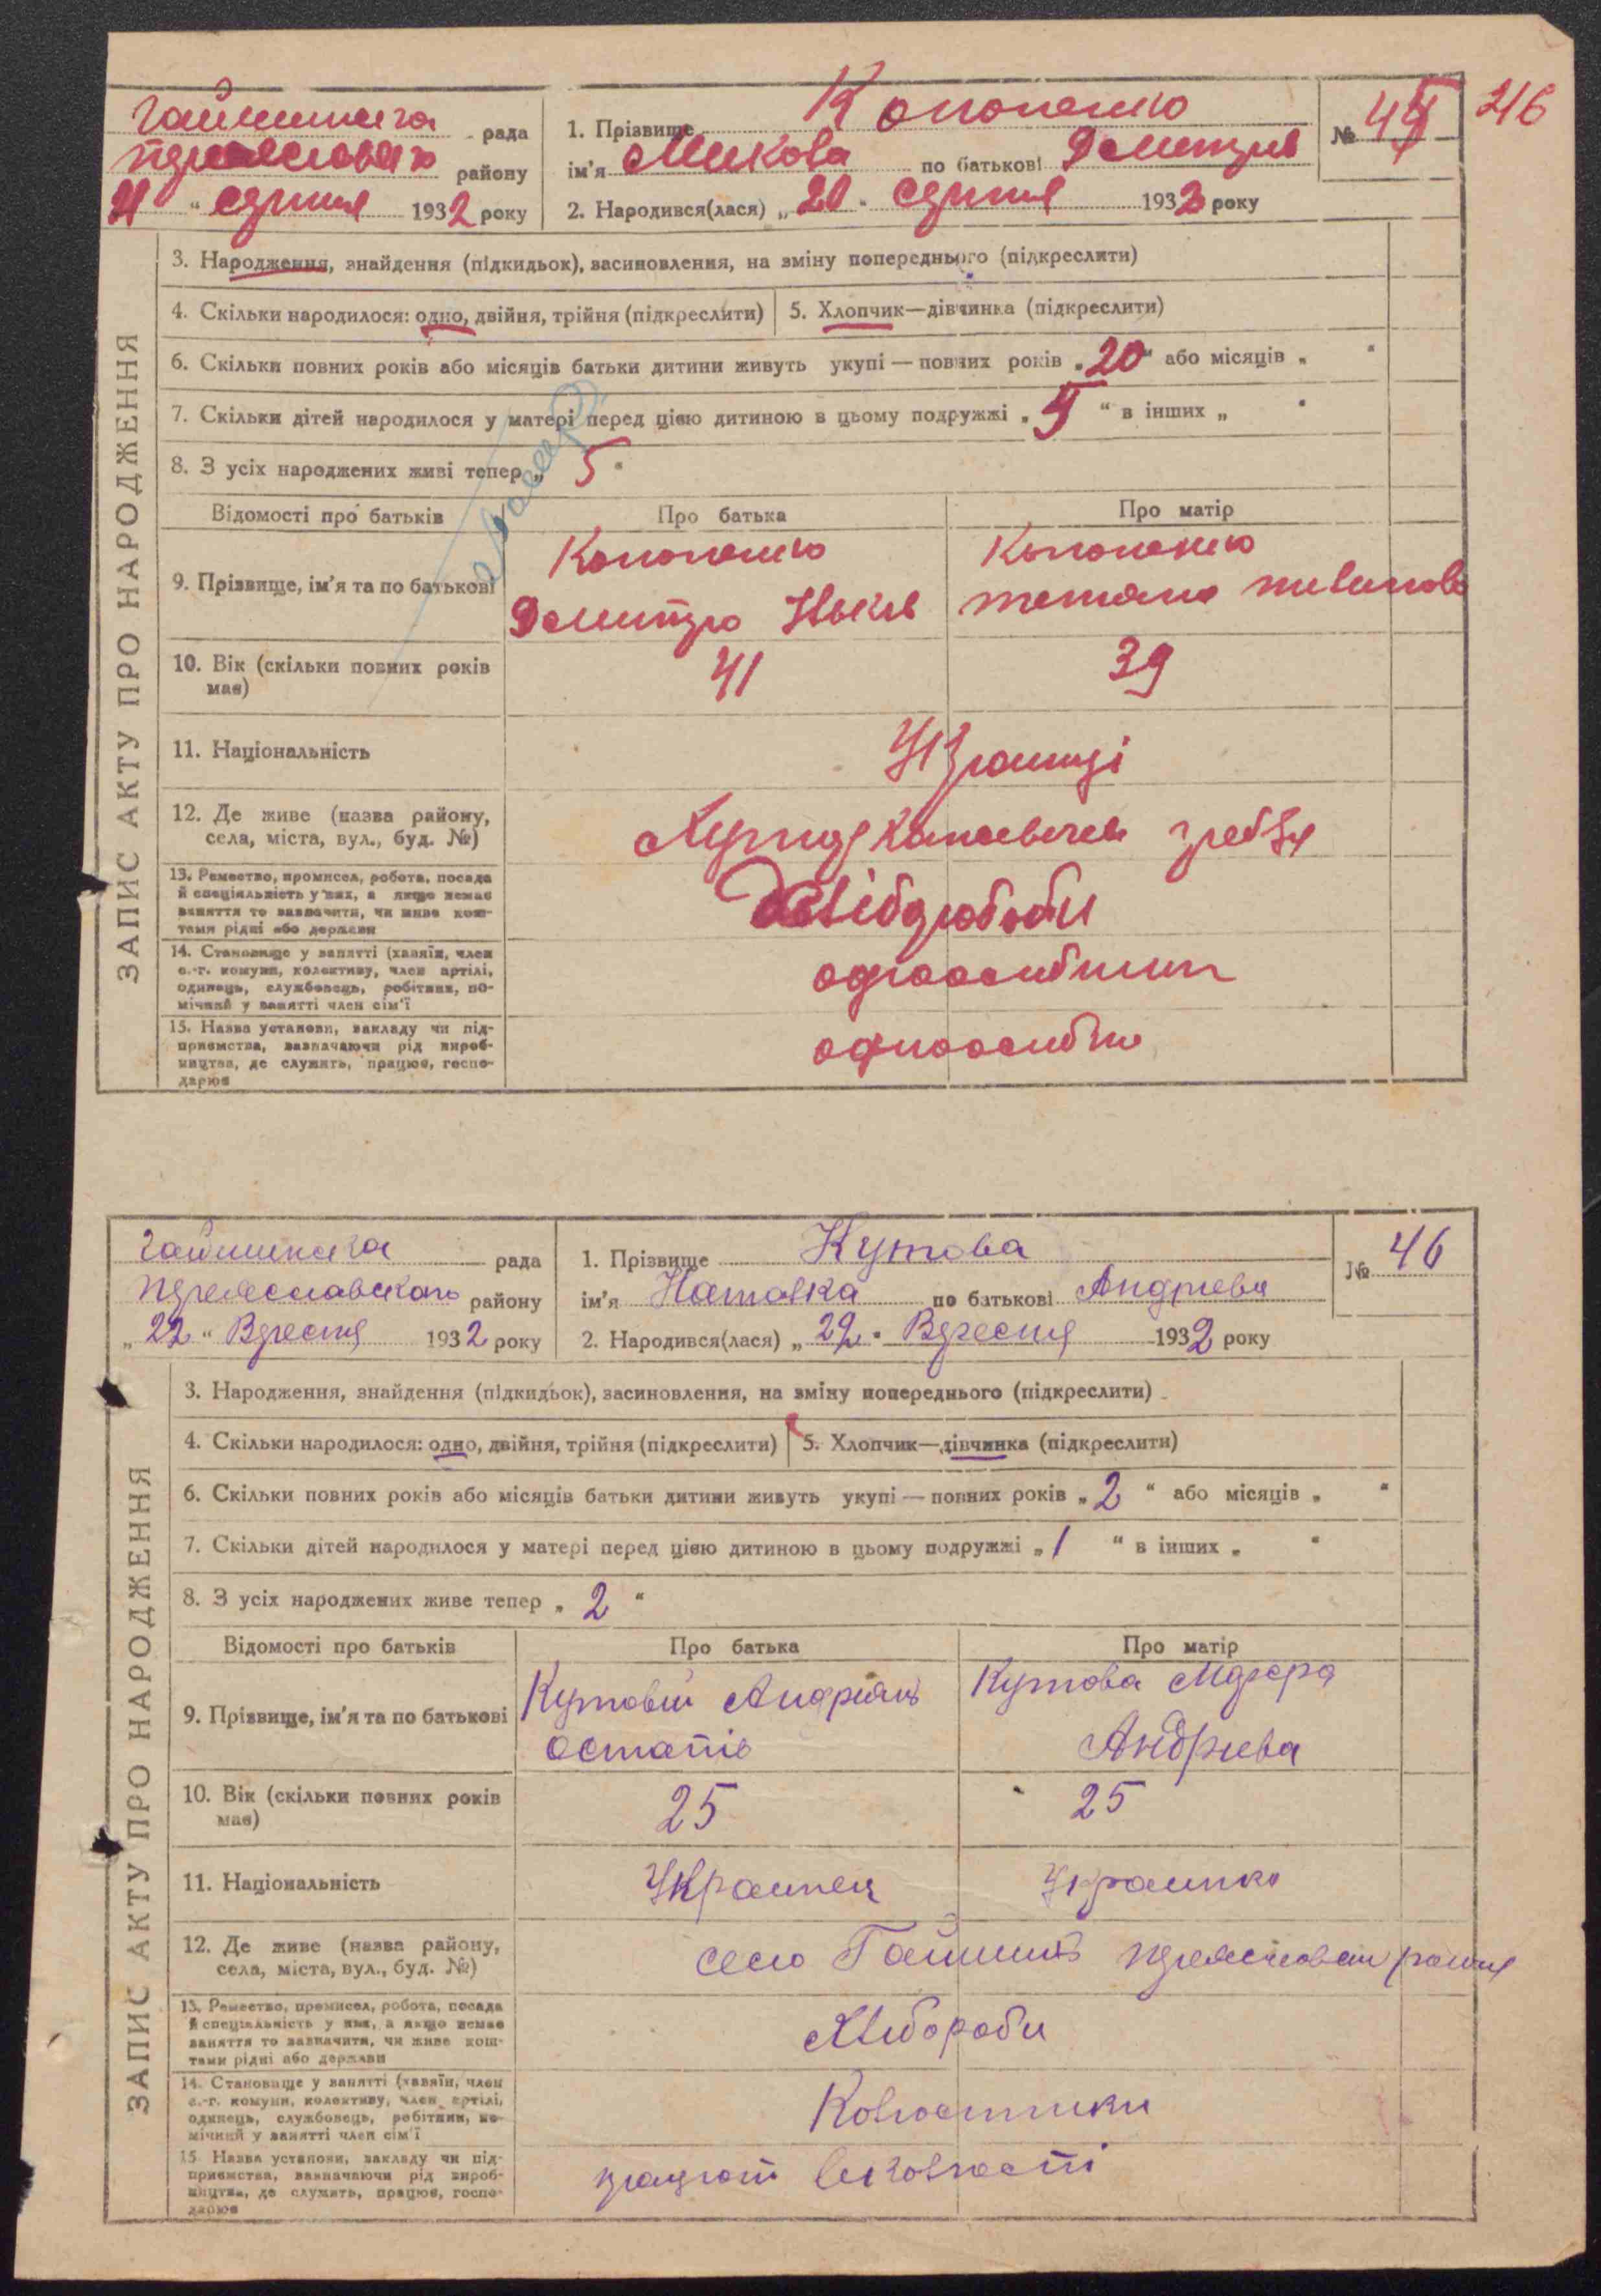 216
Гайшинська рада
району
21 " серпня 1932 року
1. Прізвище Кононенко
ім'я Микола по батькові Дмитрів
2. Народився(лася) „ 20 " серпня 1932 року
№ 45
ЗАПИС АКТУ ПРО НАРОДЖЕННЯ
3. Народження, знайдення (підкидьок), засиновлення, на зміну попереднього (підкреслити)
4. Скільки народилося: одно, двійня, трійня (підкреслити)
5. Хлопчик—дівчинка (підкреслити)
6. Скільки повних років або місяців батьки дитини живуть укупі — повних років „ 20 " або місяців „ "
7. Скільки дітей народилося у матері перед цією дитиною в цьому подружжі „ 5 " в інших „ "
8. З усіх народжених живі тепер „ 5 "
Відомості про батьків
Про батька
Про матір
9. Прізвище, ім'я та по батькові
Кононенко
Дмитро
Кононенко
тетяна
10. Вік (скільки повних років
має)
41
39
11. Національність
Українці
12. Де живе (назва району,
села, міста, вул., буд. №)
Хутір
13. Ремество, промисел, робота, посада
й спеціяльність у них, а якщо немає
заняття то зазначити, чи живе кош-
тами рідні або держави
Хлібороби
14. Становище у занятті (хазяїн, член
с.-г. комуни, колективу, член артілі,
одинець, службовець, робітник, по-
мічний у занятті член сім'ї
одноосібник
15. Назва установи, закладу чи під-
приємства, зазначаючи рід вироб-
ництва, де служить, працює, госпо-
дарює
одноосібно
Гайшинська рада
Переяславського району
„ 22 " Вересня 1932 року
1. Прізвище Кутова
ім'я Наталка по батькові Андрієва
2. Народився(лася) „ 22 " Вересня 1932 року
№ 46
ЗАПИС АКТУ ПРО НАРОДЖЕННЯ
3. Народження, знайдення (підкидьок), засиновлення, на зміну попереднього (підкреслити)
4. Скільки народилося: одно, двійня, трійня (підкреслити)
5. Хлопчик—дівчинка (підкреслити)
6. Скільки повних років або місяців батьки дитини живуть укупі — повних років „ 2 " або місяців „ "
7. Скільки дітей народилося у матері перед цією дитиною в цьому подружжі „ 1 " в інших „ "
8. З усіх народжених живе тепер „ 2 "
Відомості про батьків
Про батька
Про матір
9. Прізвище, ім'я та по батькові
Кутовий
остапів
Кутова
Андрієва
10. Вік (скільки повних років
має)
25
25
11. Національність
Українец
Українка
12. Де живе (назва району,
села, міста, вул., буд. №)
село Гайшин
13. Ремество, промисел, робота, посада
й спеціяльність у них, а якщо немає
заняття то зазначити, чи живе кош-
тами рідні або держави
Хлібороби
14. Становище у занятті (хазяїн, член
с.-г. комуни, колективу, член артілі,
одинець, службовець, робітник, по-
мічний у занятті член сім'ї
Колгоспники
15. Назва установи, закладу чи під-
приємства, зазначаючи рід вироб-
ництва, де служить, працює, госпо-
дарює
працюют в колгоспі